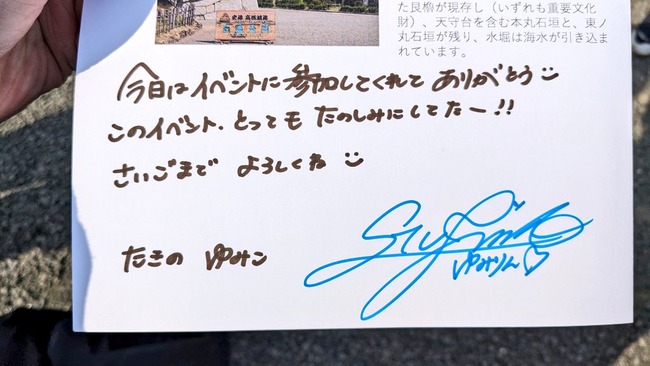 た艮櫓が現存し（いずれも重要文化
財）、天守台を含む本丸石垣と、東ノ
丸石垣が残り、水堀は海水が引き込ま
れています。
史跡 高松城跡
今日はイベントに参加してくれて ありがとう
このイベント、とっても たのしみにしてたー!!
さいごまで よろしくね
たきの ゆみこ
ゆみりん♡